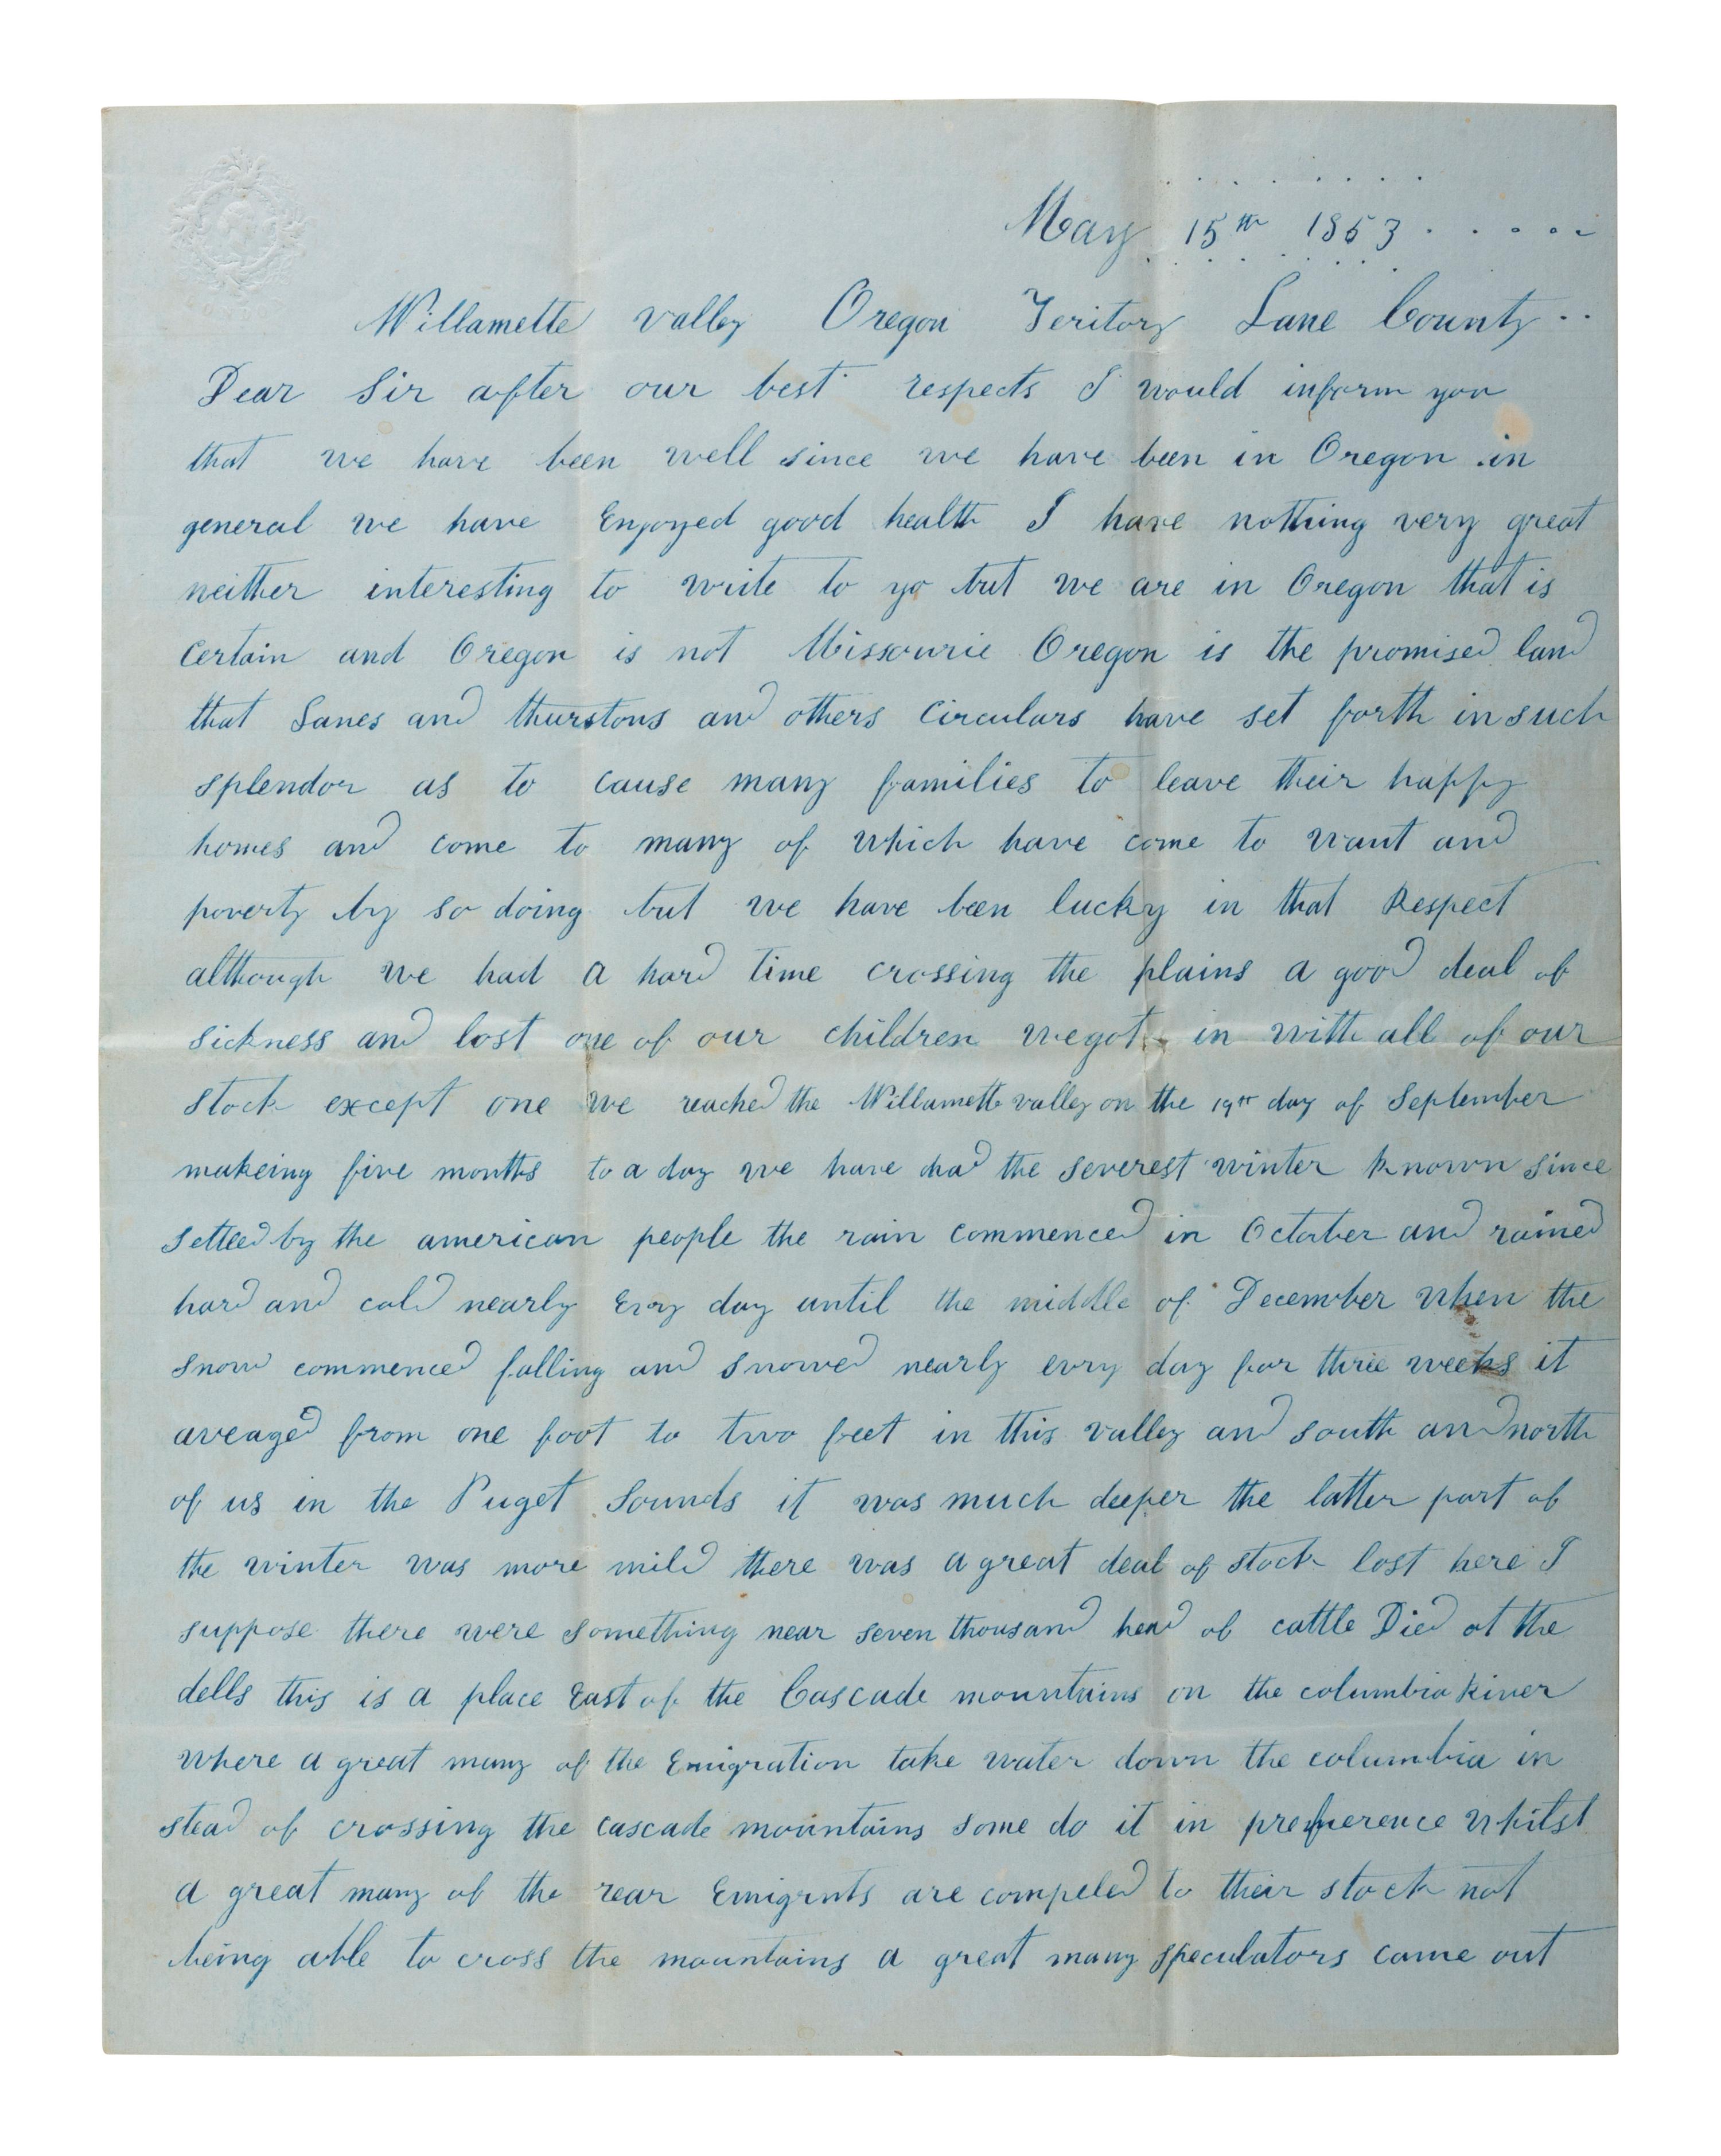 May 15th 1853 . . . . .
Willamette valley Oregon Teritory Lane County ..
Dear Sir after our best respects I would inform you
that we have been well since we have been in Oregon in
general we have Enjoyed good health I have nothing very great
neither interesting to write to yo but we are in Oregon that is
certain and Oregon is not Missourie Oregon is the promised land
that Lanes and thurstons and others circulars have set forth in such
splendor as to cause many families to leave their happy
homes and come to many of which have come to want and
poverty by so doing but we have been lucky in that Respect
although we had a hard time crossing the plains a good deal of
sickness and lost one of our children we got in with all of our
stock except one we reached the Willamette valley on the 19th day of September
makeing five months to a day we have had the severest winter known since
setteed by the american people the rain commenced in October and rained
hard and cold nearly Evry day until the middle of December when the
snow commenced falling and snowed nearly evry day for three weeks it
aveaged from one foot to two feet in this valley and south and north
of us in the Puget Sounds it was much deeper the latter part of
the winter was more mild there was a great deal of stock lost here I
suppose there were something near seven thousand head of cattle Died at the
dells this is a place East of the Cascade mountains on the columbia River
where a great many of the Emigration take water down the columbia in
stead of crossing the cascade mountains some do it in preference whilst
a great many of the rear Emigrnts are compeled to their stock not
being able to cross the mountains a great many speculators came out